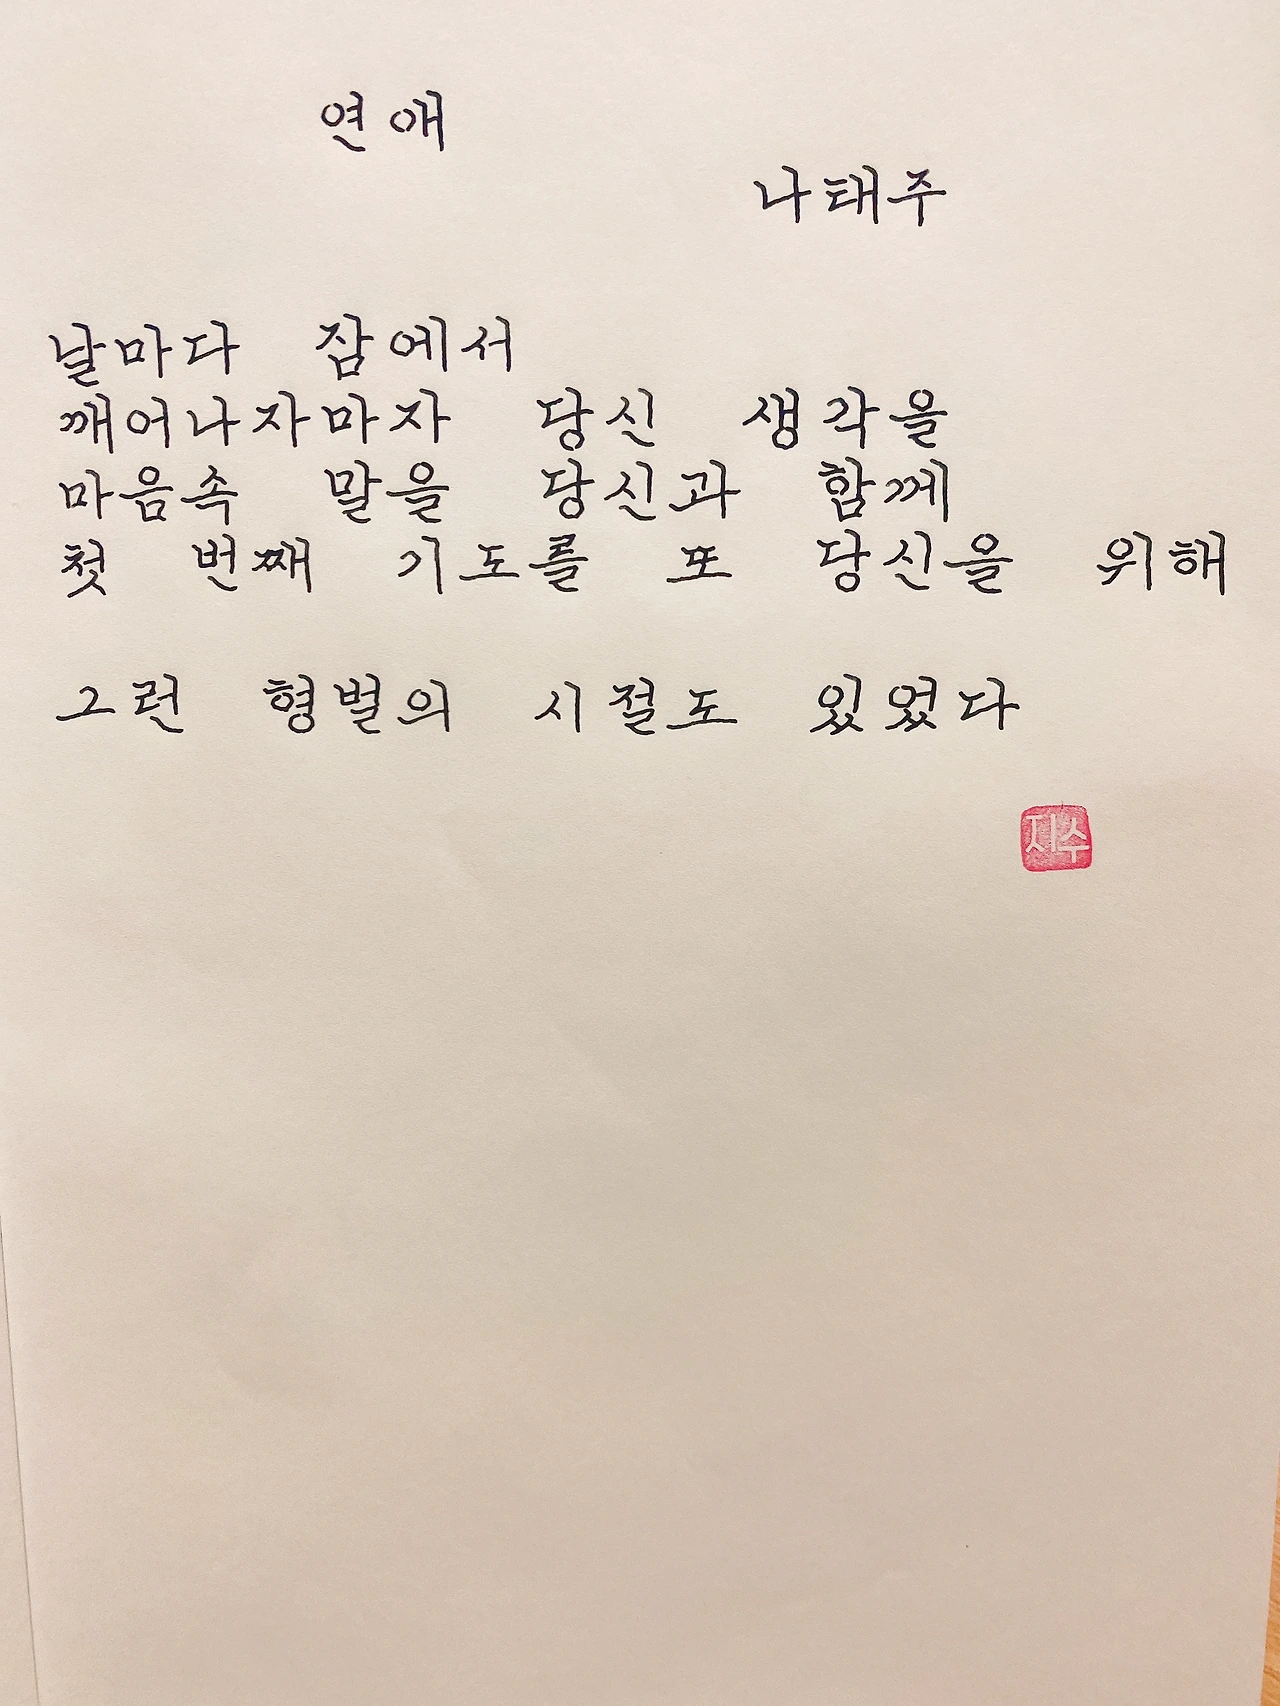 연애
나태주
날마다 잠에서
깨어나자마자 당신 생각을
마음속 말을 당신과 함께
첫 번째 기도를 또 당신을 위해
그런 형벌의 시절도 있었다
지수